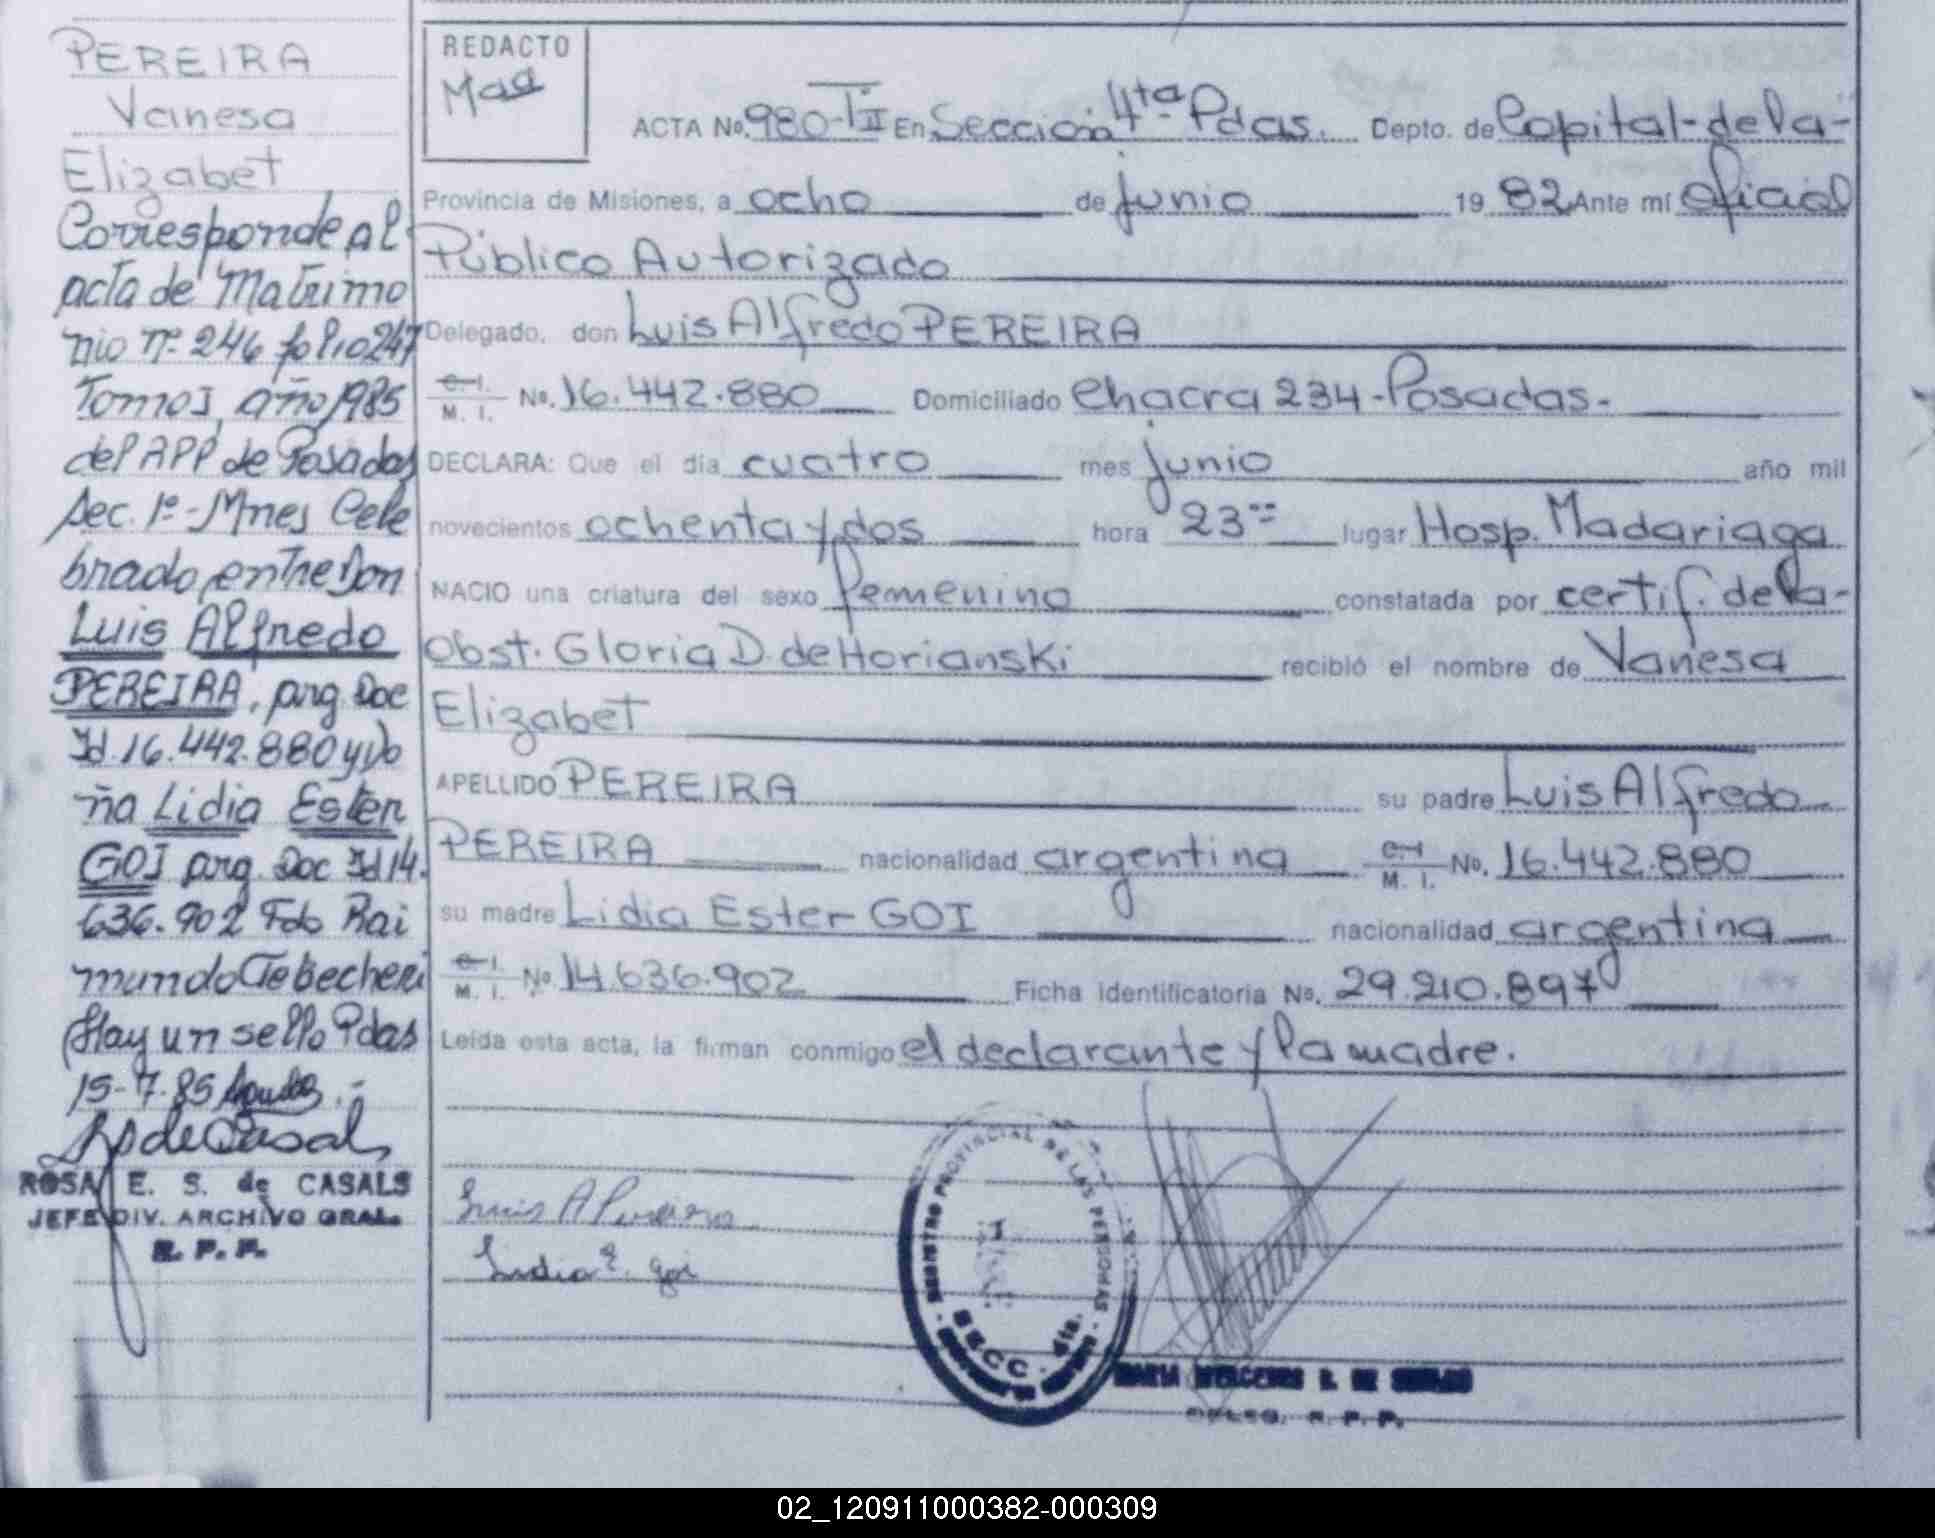 PEREIRA
Vanesa
Elizabet
Corresponde al
acta de Matrimo
nio nº 246 folio 247
Tomo I, año 1985
del APP de Posadas
Sec. 1ª - Mnes Cele
brado entre Don
Luis Alfredo
PEREIRA, arg. Doc
Id. 16.442.880 y Do
ña Lidia Ester
GOI arg. Doc Id 14.
636.902 Fdo Rai
mundo
Hay un sello Pdas
15-7-85
ROSA E. S. de CASALS
JEFE DIV. ARCHIVO GRAL.
R. P. P.
REDACTO
ACTA No. 980-TII En Sección 4ta Pdas. Depto. de Capital-de la-
Provincia de Misiones, a ocho de junio 19 82 Ante mí Oficial
Público Autorizado
Delegado, don Luis Alfredo PEREIRA
C. I.
M. I. No. 16.442.880 Domiciliado Chacra 234-Posadas-
DECLARA: Que el día cuatro mes junio año mil
novecientos ochenta y dos hora 23 lugar Hosp. Madariaga
NACIO una criatura del sexo femenino constatada por certif. de la-
Obst. Gloria D. de Horianski recibió el nombre de Vanesa
Elizabet
APELLIDO PEREIRA su padre Luis Alfredo
PEREIRA nacionalidad argentina C. I. M. I. No. 16.442.880
su madre Lidia Ester GOI nacionalidad argentina
C. I.
M. I. No 14.636.902 Ficha identificatoria No. 29.210.897
Leída esta acta, la firman conmigo el declarante y la madre.
Luis A Pereira
Lidia E. goi
REGISTRO PROVINCIAL DE LAS PERSONAS
SECC. 4ta.
R. P. P.
02_120911000382-000309